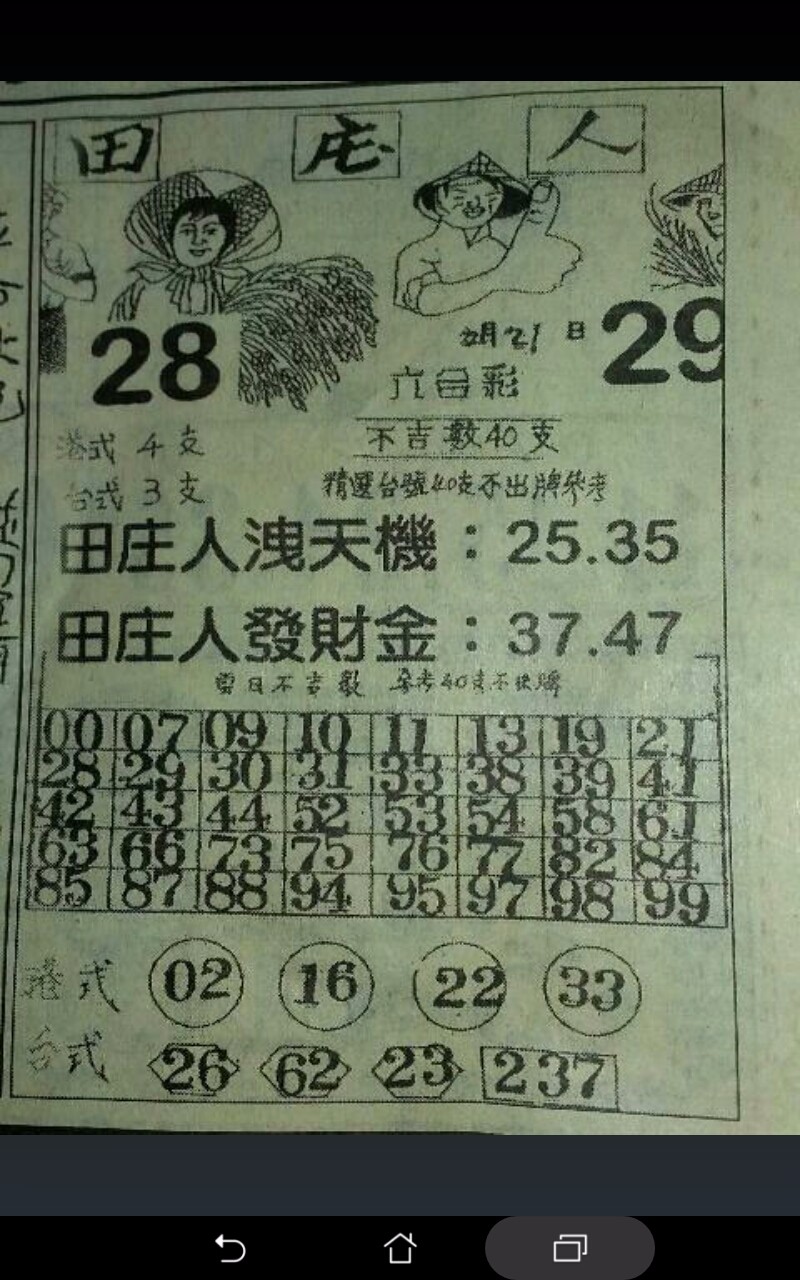 田 庄 人
28
月21日
29
六合彩
港式 4支
不吉數40支
台式 3支
精選台號40支不出牌參考
田庄人洩天機：25.35
田庄人發財金：37.47
當日不吉數 參考40支不出牌
00 07 09 10 11 13 19 21
28 29 30 31 33 38 39 41
42 43 44 52 53 54 58 61
63 66 73 75 76 77 82 84
85 87 88 94 95 97 98 99
港式 02 16 22 33
台式 26 62 23 237